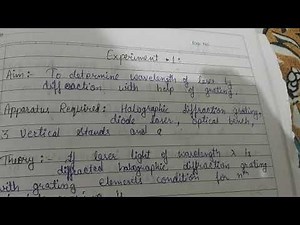 Experiment - 1:
Aim:- To determine wavelength of laser by
diffraction with help of grating.
Apparatus Required: Holographic diffraction grating,
diode laser, optical bench,
3 Vertical stands and a
Theory:- If laser light of wavelength λ is
diffracted holographic diffraction grating
with grating elements condition for nth